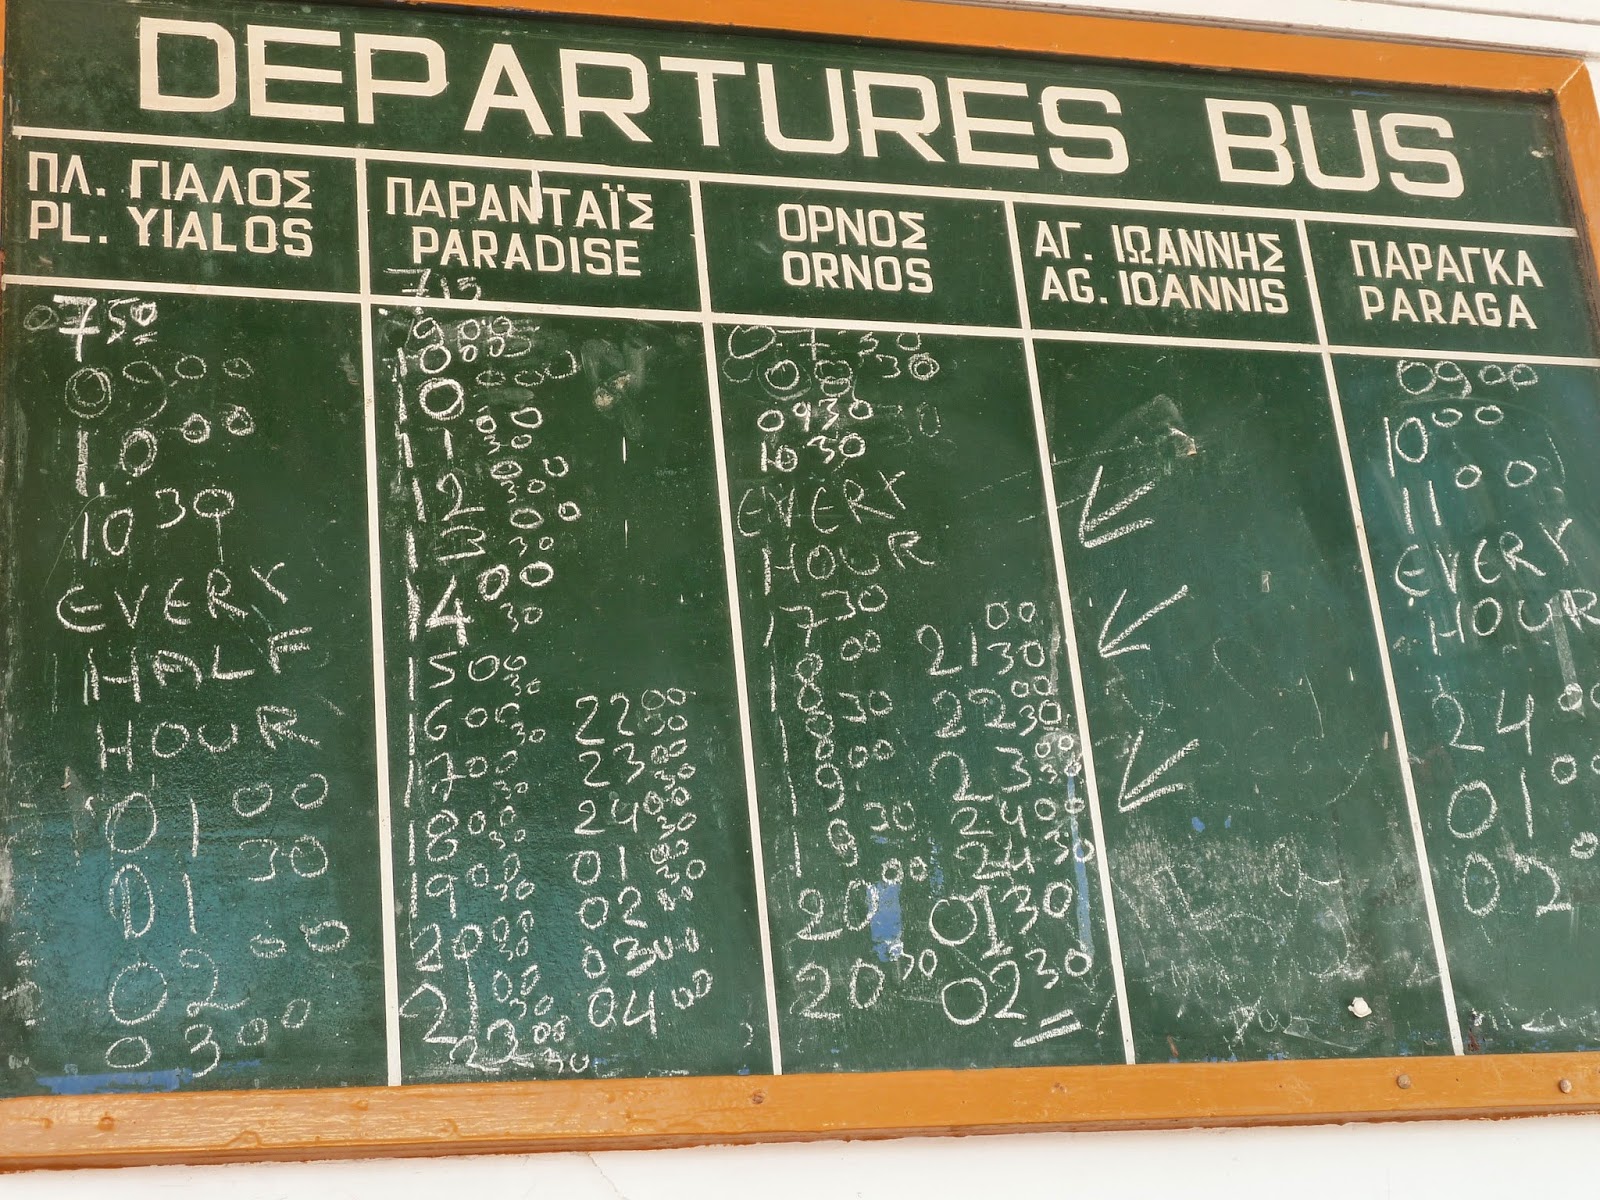 DEPARTURES BUS
ΠΛ. ΓΙΑΛΟΣ
PL. YIALOS
0750
09.00
10.00
10 30
EVERY
HALF
HOUR
01 00
01 30
02 00
03 00
ΠΑΡΑΝΤΑΪΣ
PARADISE
715
900
1000
10 00
11 00 30
12 00 30
13 00 30
14 00 30
15 00 30
16 00 30
17 00 30
18 00 30
19 00 30
20 00 30
21 00 30
22 00 30
22 00 30
23 00 30
24 00 30
01 00 30
02 00
03 00
04 00
ΟΡΝΟΣ
ORNOS
07 30
08 30
0930
1030
EVERY
HOUR
1730
18 00
18 30
19 00
19 30
20 00
20 30
21 00 30
22 00 30
23 00 30
24 00
24 30
01 30
02 30
ΑΓ. ΙΩΑΝΝΗΣ
AG. IOANNIS
ΠΑΡΑΓΚΑ
PARAGA
09 00
10 00
11 00
EVERY
HOUR
24 00
01 00
02